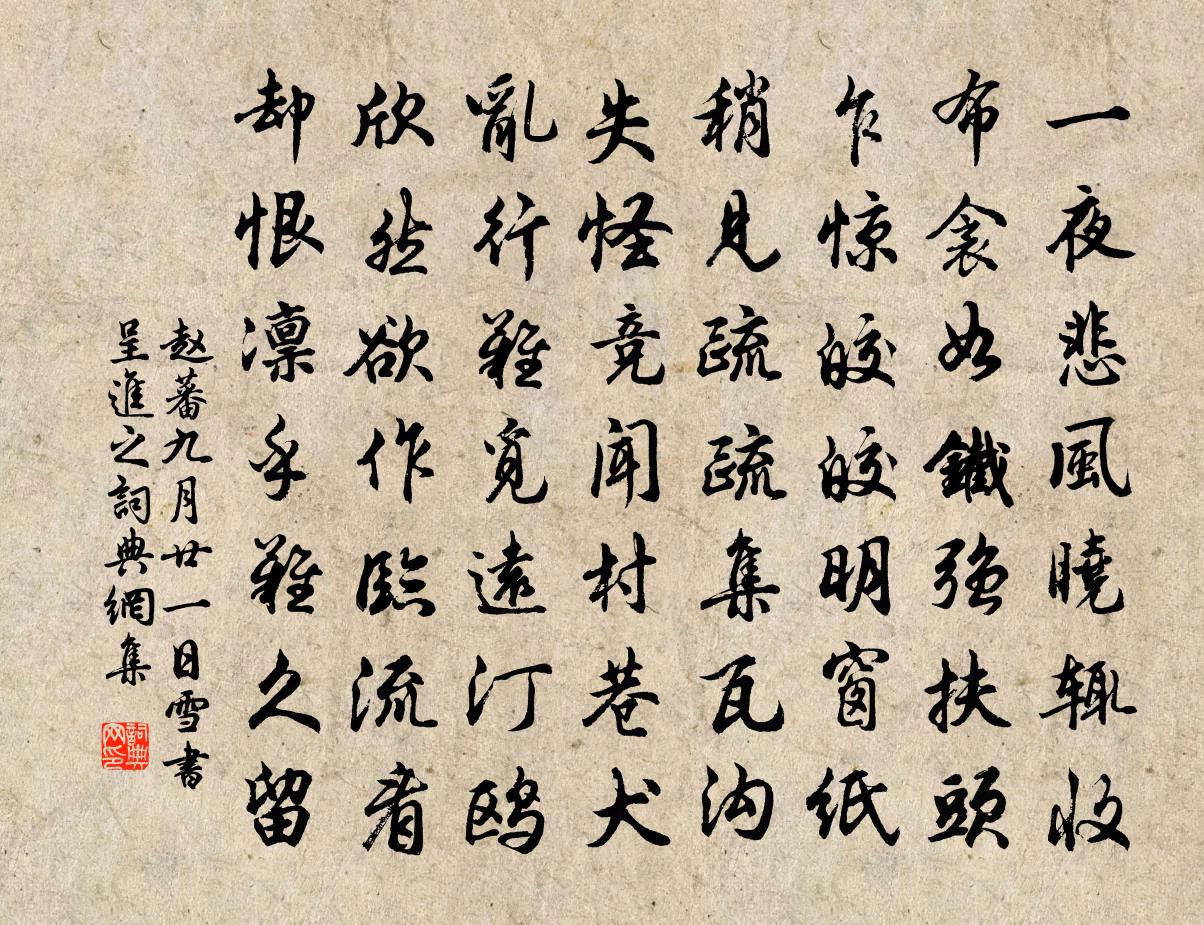 一夜悲風曉輒收
布衾如鐵強扶頭
乍惊皎皎明窗紙
稍見疏疏集瓦沟
失怪竞聞村巷犬
亂行難覓遠汀鸥
欣然欲作臨流看
却恨凛乎難久留
赵蕃九月廿一日雪書
呈進之詞典網集
詞典网印